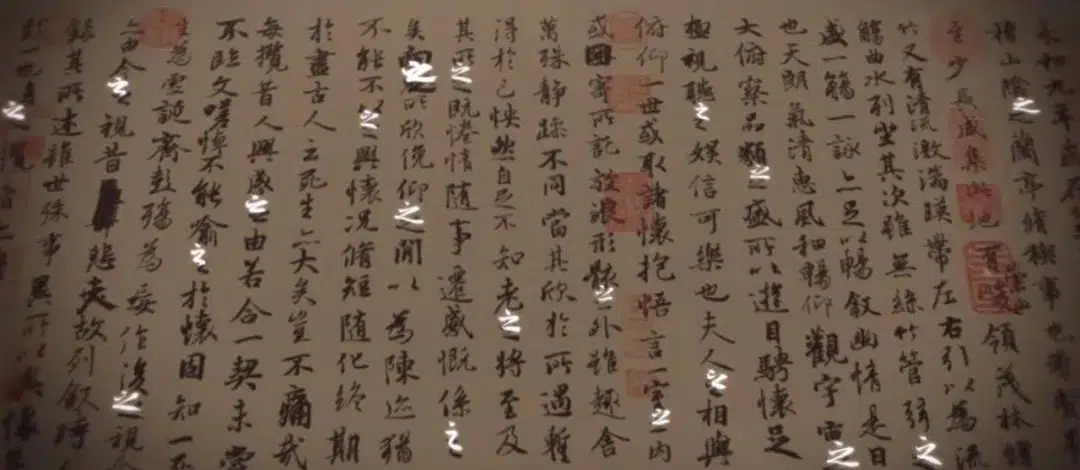 永和九年歲在
稽山陰之蘭亭脩稧事也羣
至少長咸集此地有崇山峻領茂林脩
竹又有清流激湍暎帶左右引以為流
觴曲水列坐其次雖無絲竹管弦之
盛一觴一詠亦足以暢叙幽情是日
也天朗氣清惠風和暢仰觀宇宙之
大俯察品類之盛所以遊目騁懷足
極視聽之娛信可樂也夫人之相與
俯仰一世或取諸懷抱悟言一室之內
或因寄所託放浪形骸之外雖趣舍
萬殊静躁不同當其欣於所遇暫
得於己怏然自足不知老之將至及
其所之既惓情隨事遷感慨係之
矣向之所欣俛仰之閒以為陳迹猶
不能不以之興懷況脩短隨化終期
於盡古人云死生亦大矣豈不痛哉
每攬昔人興感之由若合一契未嘗
不臨文嗟悼不能喻之於懷固知一死
生為虛誕齊彭殤為妄作後之視今
亦由今之視昔悲夫故列叙時
錄其所述雖世殊事異所以興懷